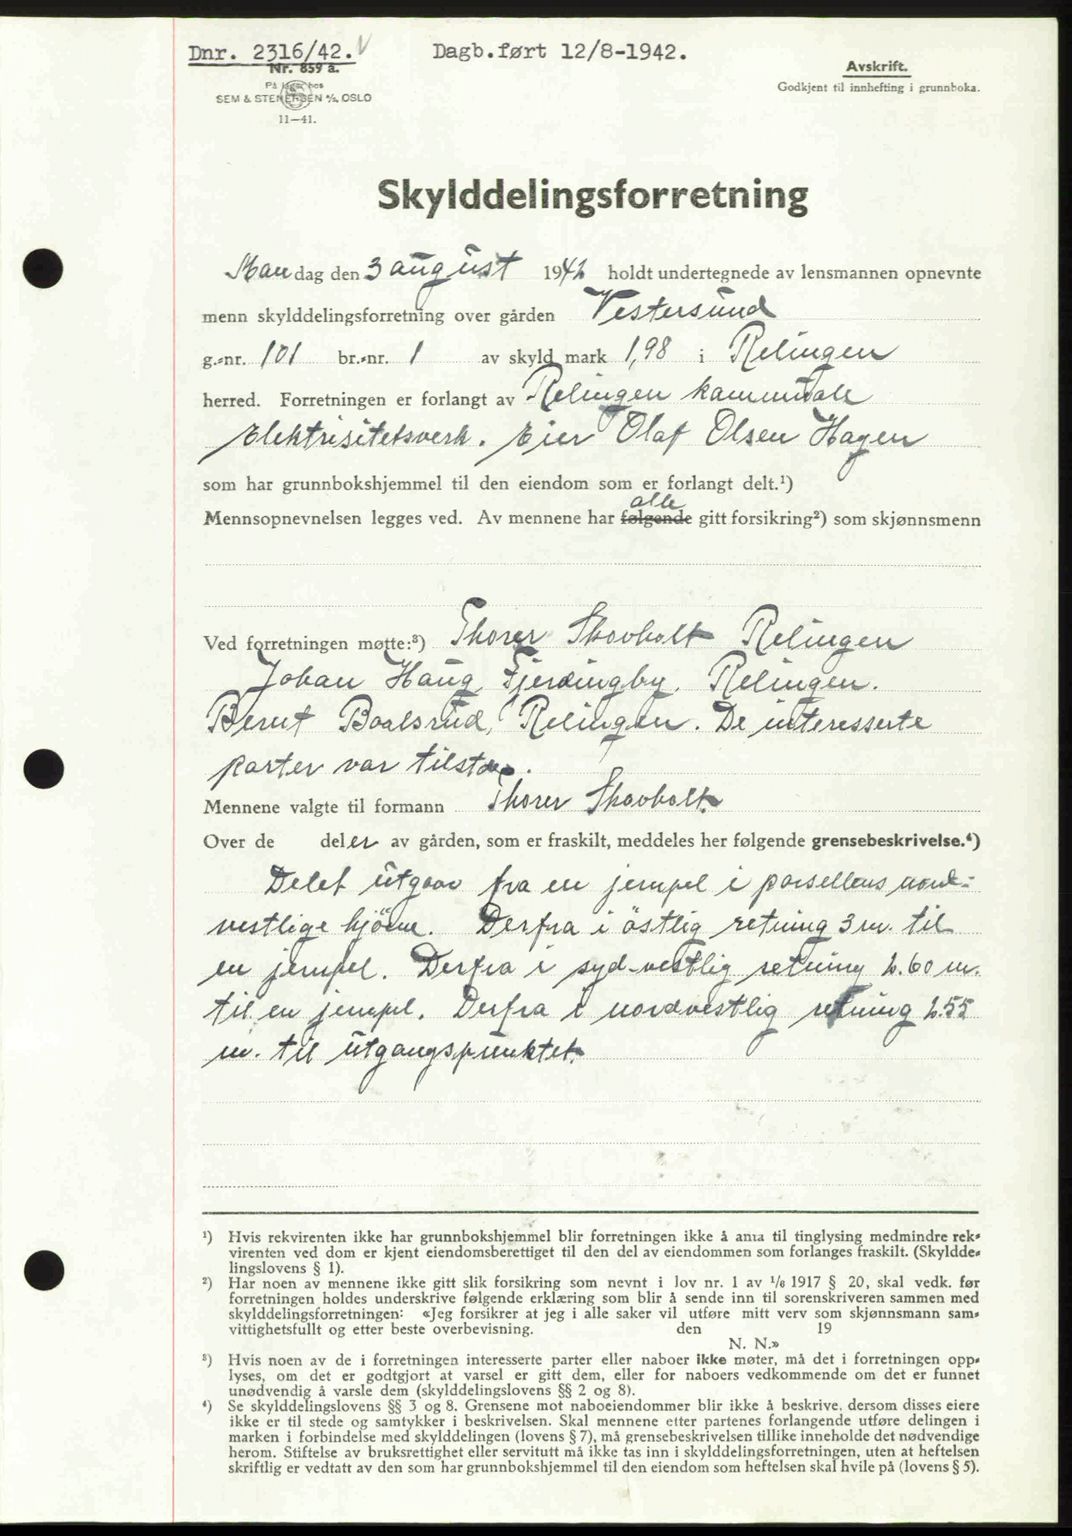 Dnr. 2316/42. V
Dagb.ført 12/8-1942.
Nr. 859 a.
På lager hos
SEM & STENERSEN A/S, OSLO
11—41.
Avskrift.
Godkjent til innhefting i grunnboka.
Skylddelingsforretning
Mandag den 3 august 1942 holdt undertegnede av lensmannen opnevnte
menn skylddelingsforretning over gården Vestersund
g.-nr. 101 br.-nr. 1 av skyld mark 1,98 i Relingen
herred. Forretningen er forlangt av Relingen kommunale
Elektrisitetsverk. Eier Olaf Olsen Hagen
som har grunnbokshjemmel til den eiendom som er forlangt delt.¹)
alle
Mennsopnevnelsen legges ved. Av mennene har følgende gitt forsikring²) som skjønnsmenn
Ved forretningen møtte:³) Thorer Skovholt Relingen
Johan Haug, Fjerdingby, Relingen.
Bernt Boalsrud, Relingen. De interesserte
parter var tilstede.
Mennene valgte til formann Thorer Skovholt.
Over de deler av gården, som er fraskilt, meddeles her følgende grensebeskrivelse.⁴)
Delet utgaar fra en jernpel i parsellens nord-
vestlige hjörne. Derfra i östlig retning 3 m. til
en jernpel. Derfra i syd-vestlig retning 2.60 m.
til en jernpel. Derfra i nordvestlig retning 2.55
m. til utgangspunktet.
¹) Hvis rekvirenten ikke har grunnbokshjemmel blir forretningen ikke å anta til tinglysing medmindre rek-
virenten ved dom er kjent eiendomsberettiget til den del av eiendommen som forlanges fraskilt. (Skyldde-
lingslovens § 1).
²) Har noen av mennene ikke gitt slik forsikring som nevnt i lov nr. 1 av 1/6 1917 § 20, skal vedk. før
forretningen holdes underskrive følgende erklæring som blir å sende inn til sorenskriveren sammen med
skylddelingsforretningen: «Jeg forsikrer at jeg i alle saker vil utføre mitt verv som skjønnsmann sam-
vittighetsfullt og etter beste overbevisning. den 19
N. N.»
³) Hvis noen av de i forretningen interesserte parter eller naboer ikke møter, må det i forretningen opp-
lyses, om det er godtgjort at varsel er gitt dem, eller for naboers vedkommende om det er funnet
unødvendig å varsle dem (skylddelingslovens §§ 2 og 8).
⁴) Se skylddelingslovens §§ 3 og 8. Grensene mot naboeiendommer blir ikke å beskrive, dersom disses eiere
ikke er til stede og samtykker i beskrivelsen. Skal mennene etter partenes forlangende utføre delingen i
marken i forbindelse med skylddelingen (lovens § 7), må grensebeskrivelsen tillike inneholde det nødvendige
herom. Stiftelse av bruksrettighet eller servitutt må ikke tas inn i skylddelingsforretningen, uten at heftelsen
skriftlig er vedtatt av den som har grunnbokshjemmel til den eiendom som heftelsen skal hvile på (lovens § 5).